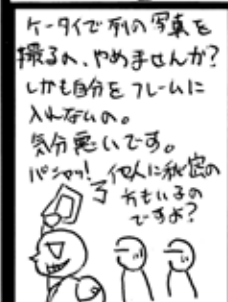 ケータイで列の写真を
撮るの、やめませんか?
しかも自分をフレームに
入れないの。
気分悪いです。
パシャッ! 他人に秘密の
方もいるの
ですよ?